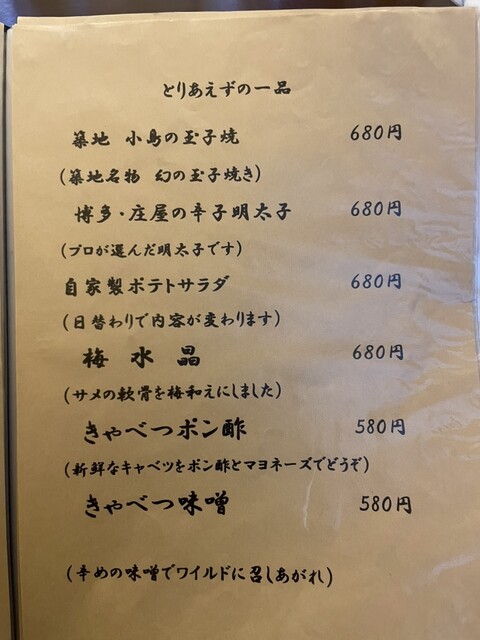 とりあえずの一品
築地 小島の玉子焼 680円
(築地名物 幻の玉子焼き)
博多・庄屋の辛子明太子 680円
(プロが選んだ明太子です)
自家製ポテトサラダ 680円
(日替わりで内容が変わります)
梅 水 晶 680円
(サメの軟骨を梅和えにしました)
きゃべつポン酢 580円
(新鮮なキャベツをポン酢とマヨネーズでどうぞ)
きゃべつ味噌 580円
(辛めの味噌でワイルドに召しあがれ)